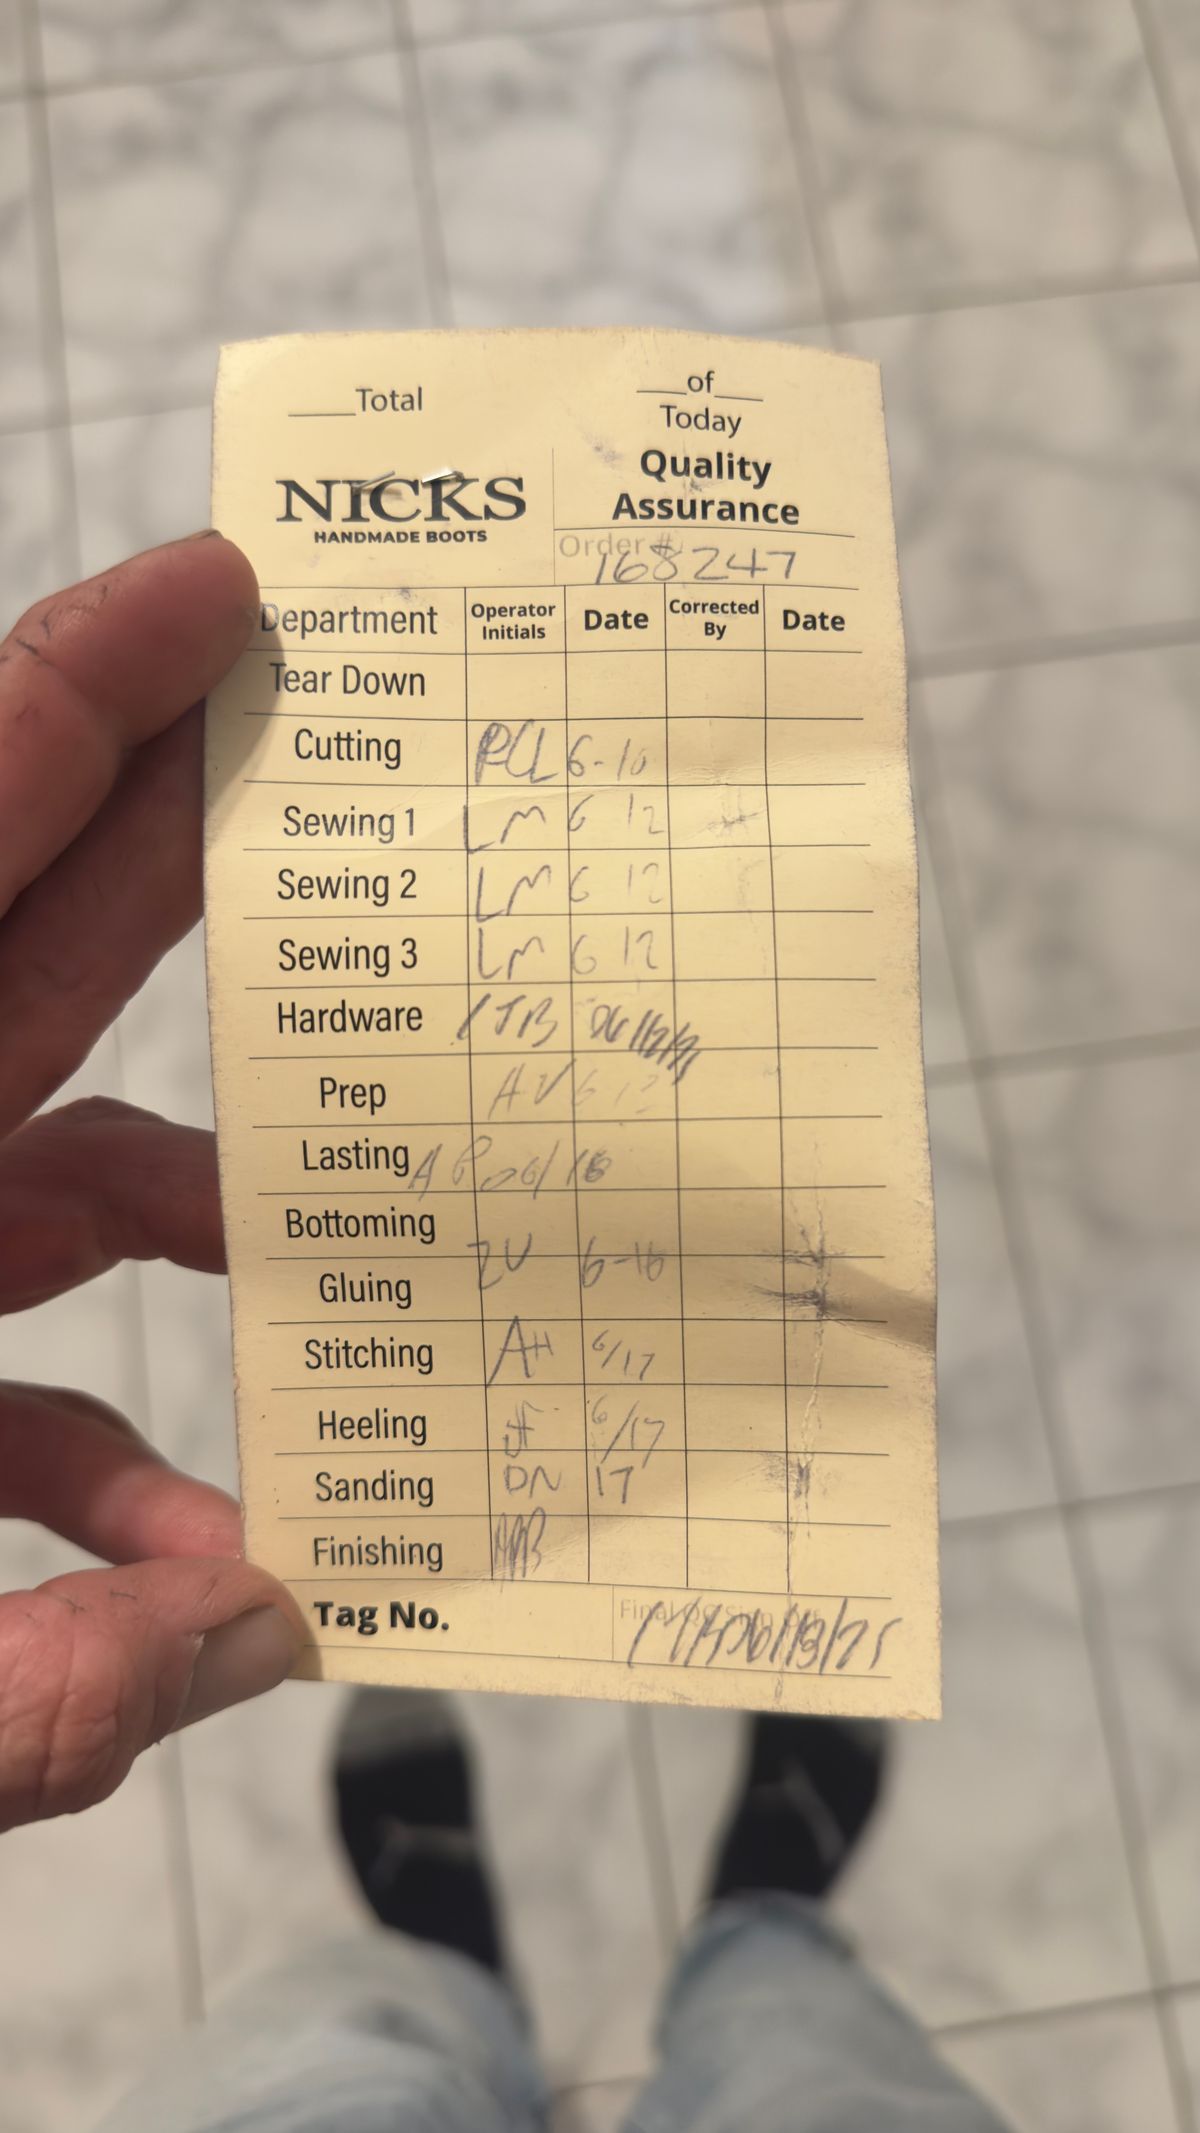 ____Total
___of___
Today
NICKS
HANDMADE BOOTS
Quality
Assurance
Order #
168247
Department Operator Initials Date Corrected By Date
Tear Down
Cutting RCL 6-10
Sewing 1 LM 6 12
Sewing 2 LM 6 12
Sewing 3 LM 6 12
Hardware JB
Prep AV 6 12
Lasting AP 06/16
Bottoming
Gluing ZV 6-16
Stitching AH 6/17
Heeling JF 6/17
Sanding DN 17
Finishing
Tag No. Final QC Sign Off